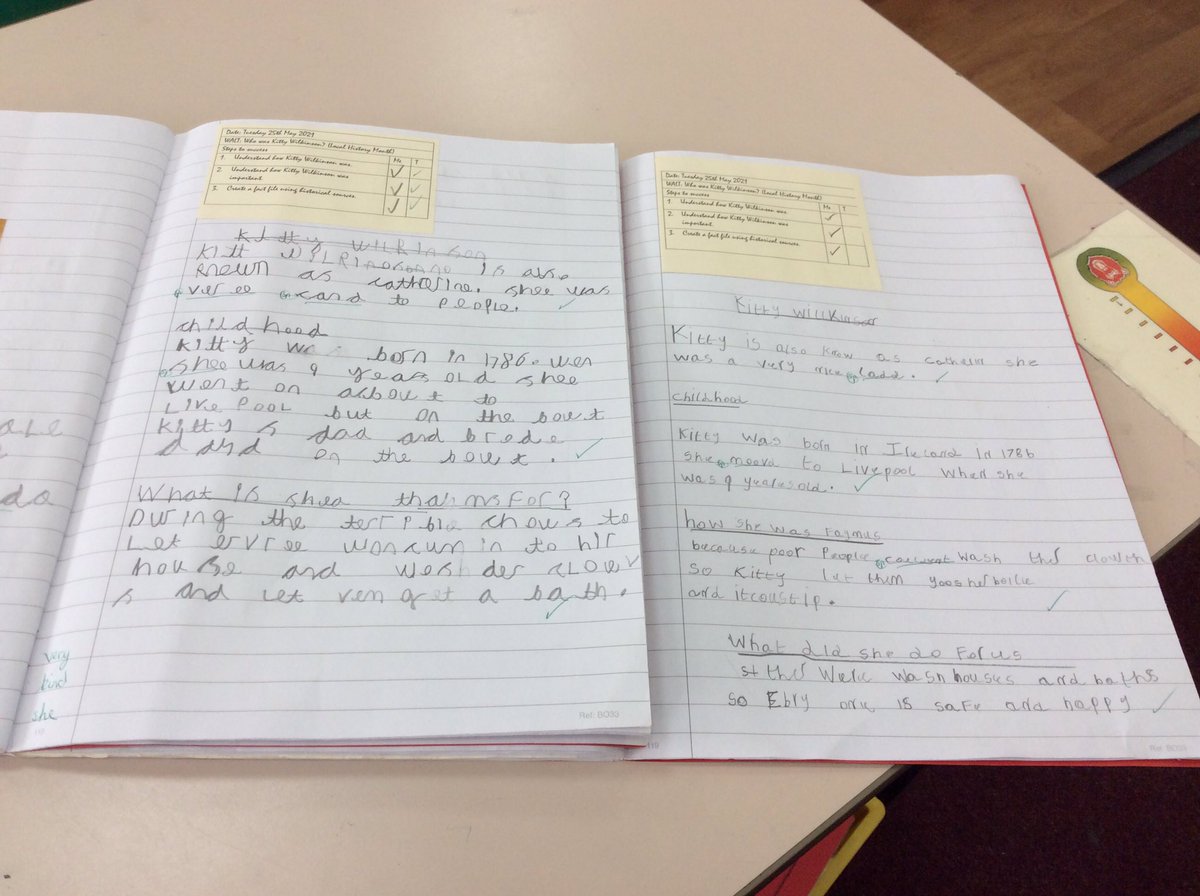 Date: Tuesday 25th May 2021
WALT: Who was Kitty Wilkinson? (Local History Month)
Steps to success
Me T
1. Understand how Kitty Wilkinson was
2. Understand how Kitty Wilkinson was
important
3. Create a fact file using historical sources.
Kitty WilRinson
Kitt is also
Rnown as catherine. shee was
veree cand to people.
child hood
Kitty wa born in 1786. wen
shee was 9 years old shee
went on abowt to
Live Pool but on the bowt
Kitty s dad and brede
dand on the bowt.
What is shea for?
During the chows to
Let ervree in to hir
house and wesh der
s and let ven get a bath.
very
kind
she
Ref: BG33
Date: Tuesday 25th May 2021
WALT: Who was Kitty Wilkinson? (Local History Month)
Steps to success
Me T
1. Understand how Kitty Wilkinson was
2. Understand how Kitty Wilkinson was
important
3. Create a fact file using historical sources.
Kitty Willkinson
Kitty is also know as she
was a very nice lade.
childhood
Kitty was born in Ireland in 1786
she moovd to Livepool when she
was 9 yeares old.
how she was faymus
because poor people wash ther clowth
so Kitty let them yoos her boile
and it coust 1p.
What did she do For us
were wash houses and baths
so Ebry one is safe and happy
119
Ref: BG33